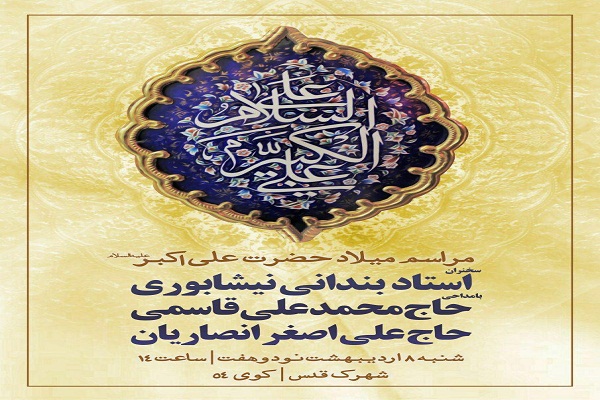 علیه السلام
علی الکبیر
مراسم میلاد حضرت علی اکبر علیه السلام
سخنران
استاد بندانی نیشابوری
بامداحی
حاج محمدعلی قاسمی
حاج علی اصغر انصاریان
شنبه ۸ اردیبهشت نود و هفت | ساعت ۱۴
شهرک قدس | کوی ۵۴